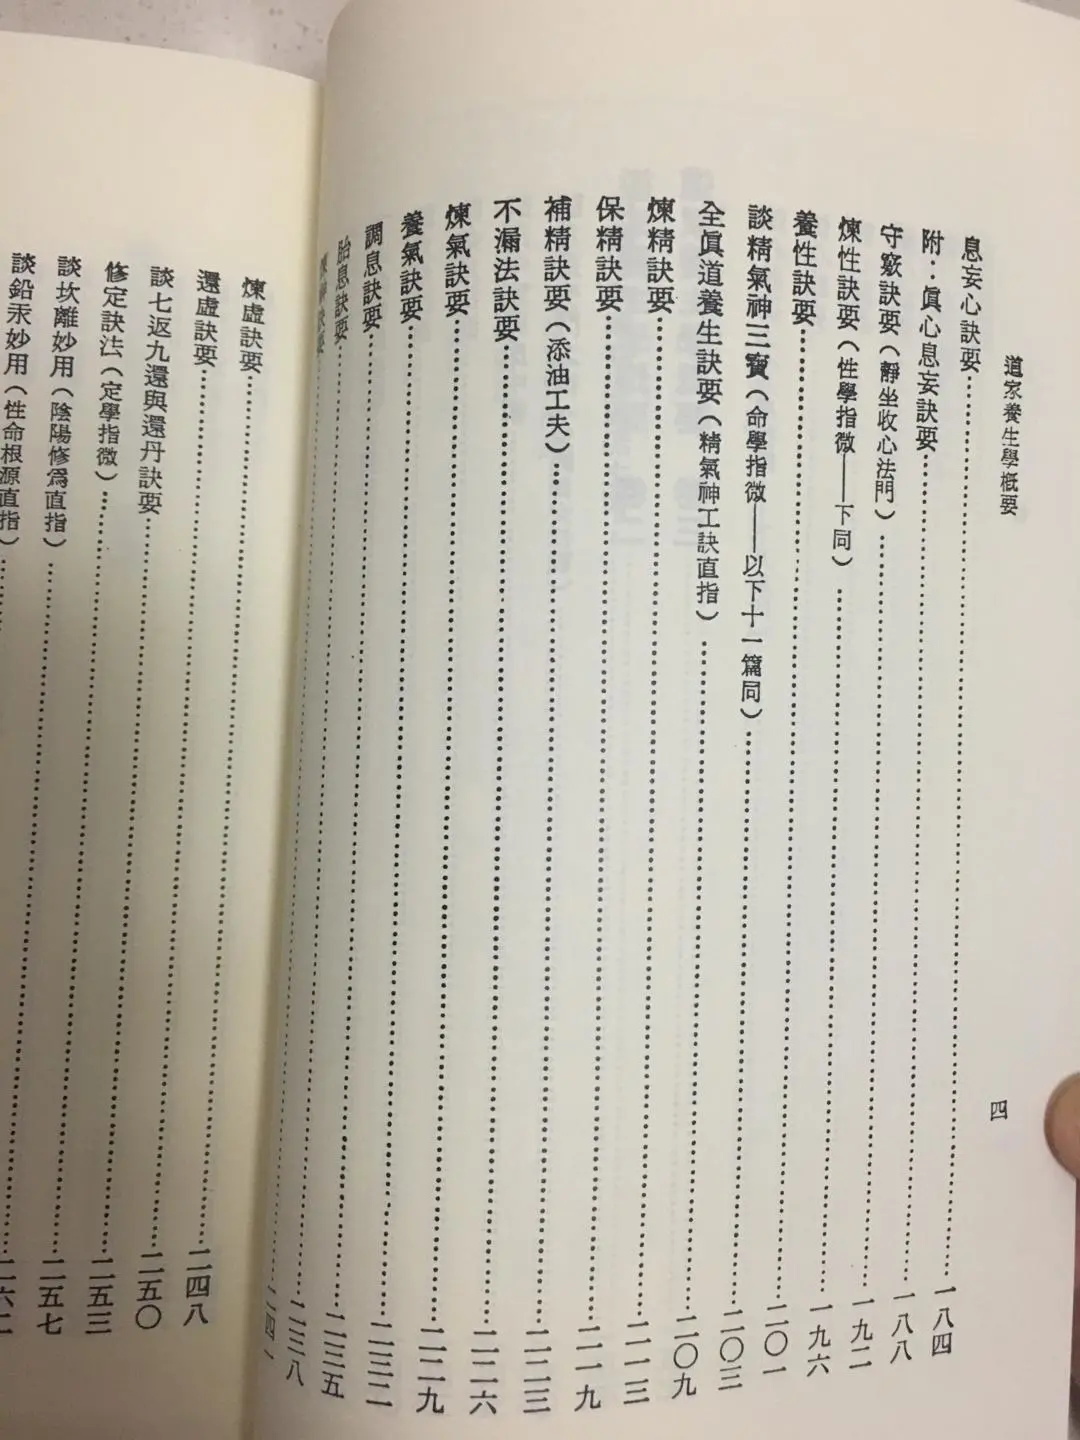 道家養生學概要
四
息妄心訣要……一八四
附：眞心息妄訣要……一八八
守竅訣要（靜坐收心法門）……一九二
煉性訣要（性學指微——下同）……一九六
養性訣要……二〇一
談精氣神三寶（命學指微——以下十一篇同）……二〇三
全眞道養生訣要（精氣神工訣直指）……二〇九
煉精訣要……二一三
保精訣要……二一九
補精訣要（添油工夫）……二二三
不漏法訣要……二二六
煉氣訣要……二二九
養氣訣要……二三二
調息訣要……二三五
胎息訣要……二三八
神訣要……
煉虛訣要……二四八
還虛訣要……二五〇
談七返九還與還丹訣要……二五三
修定訣法（定學指微）……二五七
談坎離妙用（陰陽修爲直指）……二六二
談鉛汞妙用（性命根源直指）……